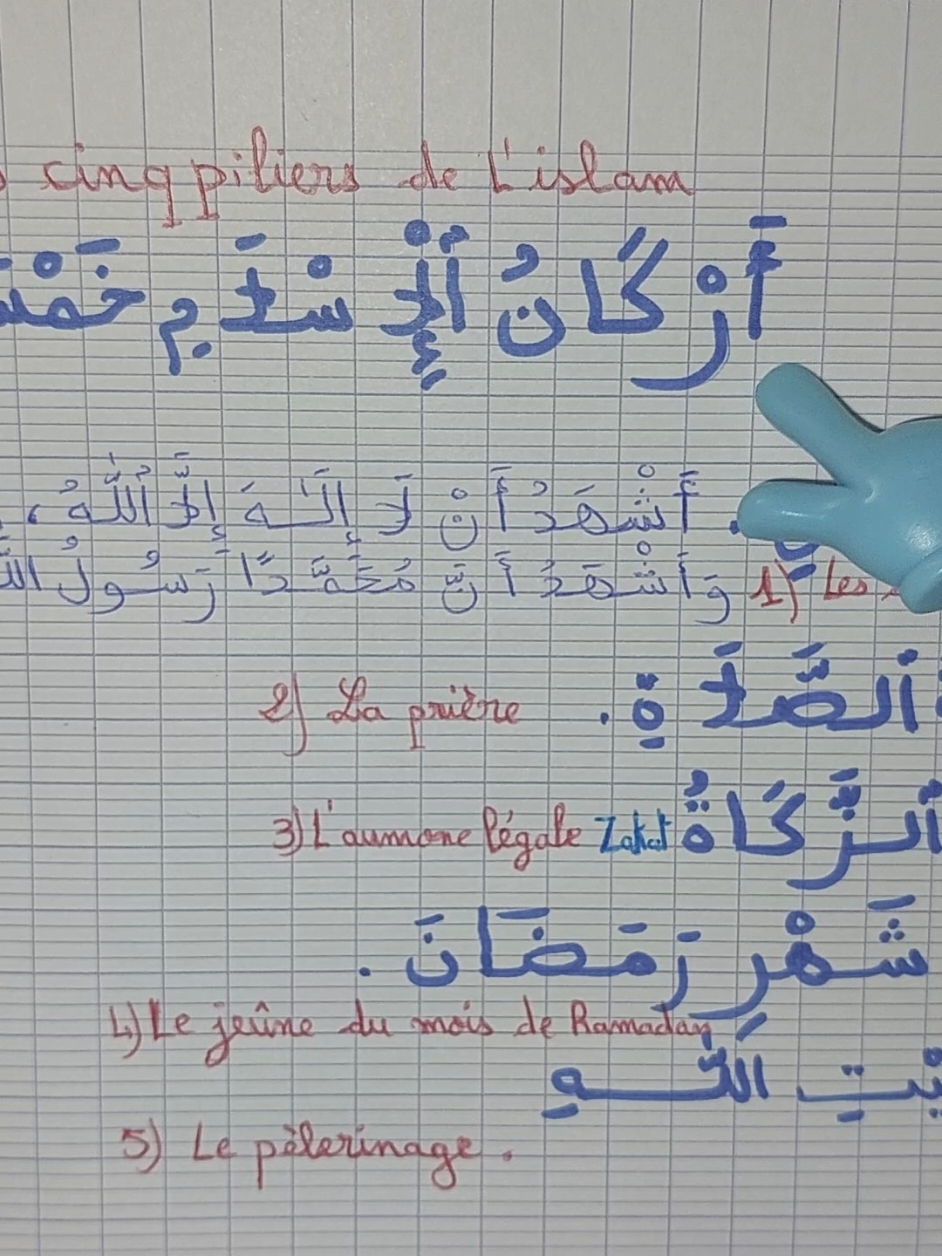 cinq piliers de L'islam
أَرْكَانُ ٱلْإِسْلَامِ
أَشْهَدُ أَنْ لَا إِلَٰهَ إِلَّا ٱللَّهُ ،
وَأَشْهَدُ أَنَّ مُحَمَّدًا رَسُولُ 1) Les
2) La prière . ٱلصَّلَاةِ
3) L'aumone légale Zakat ٱلزَّكَاةُ
شَهْرِ رَمَضَانَ .
4) Le jeûne du mois de Ramadan
اللَّهِ
5) Le pèlerinage .